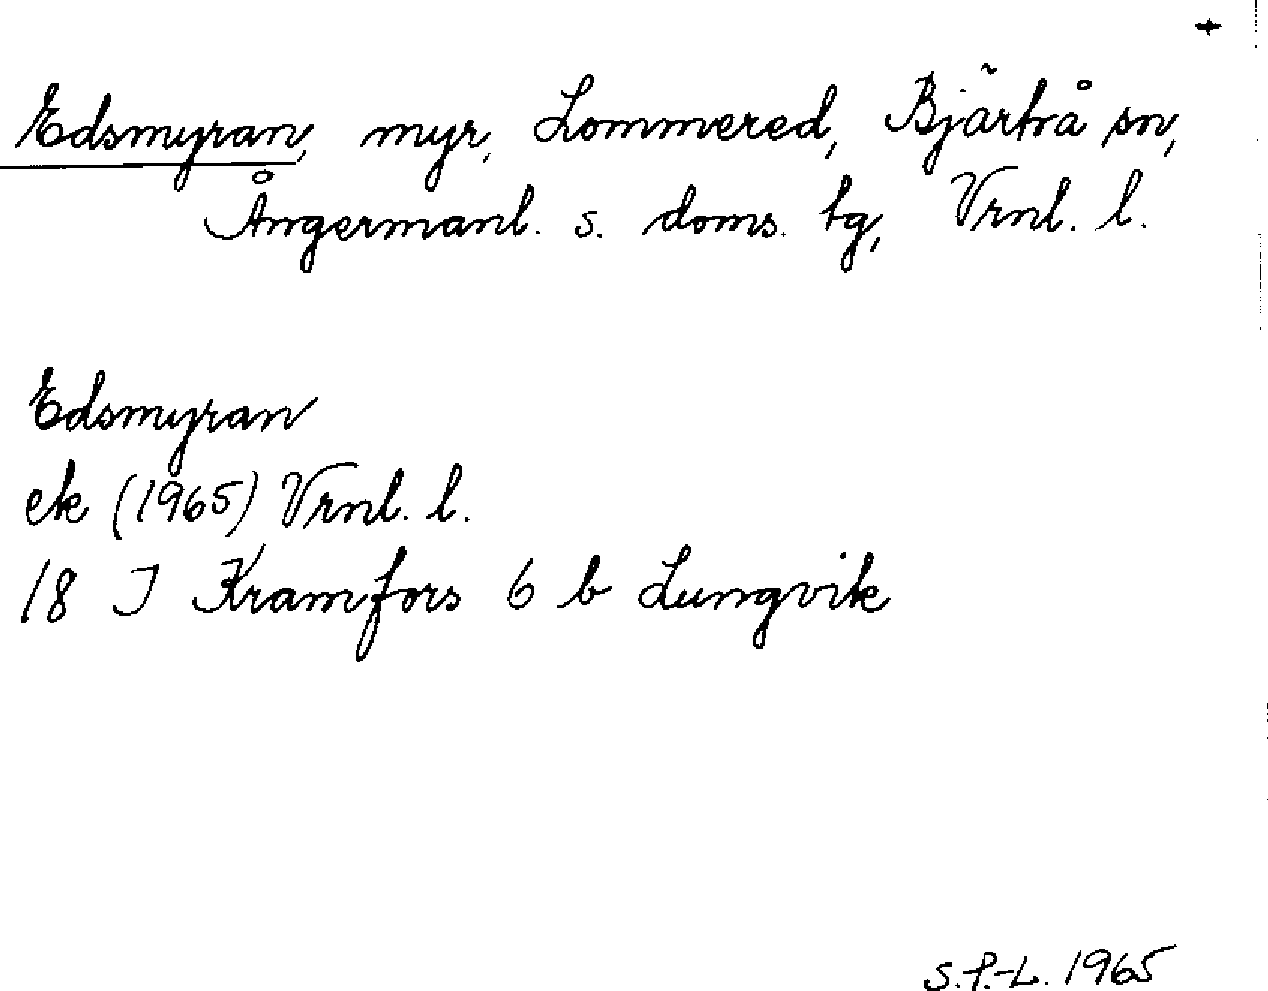 Edsmyran, myr, Lommered, Bjärtrå sn,
Ångermanl. s. doms. tg, Vrnl. l.
Edsmyran
ek (1965) Vrnl. l.
18 J Kramfors 6 b Lungvik
S.P.-L. 1965